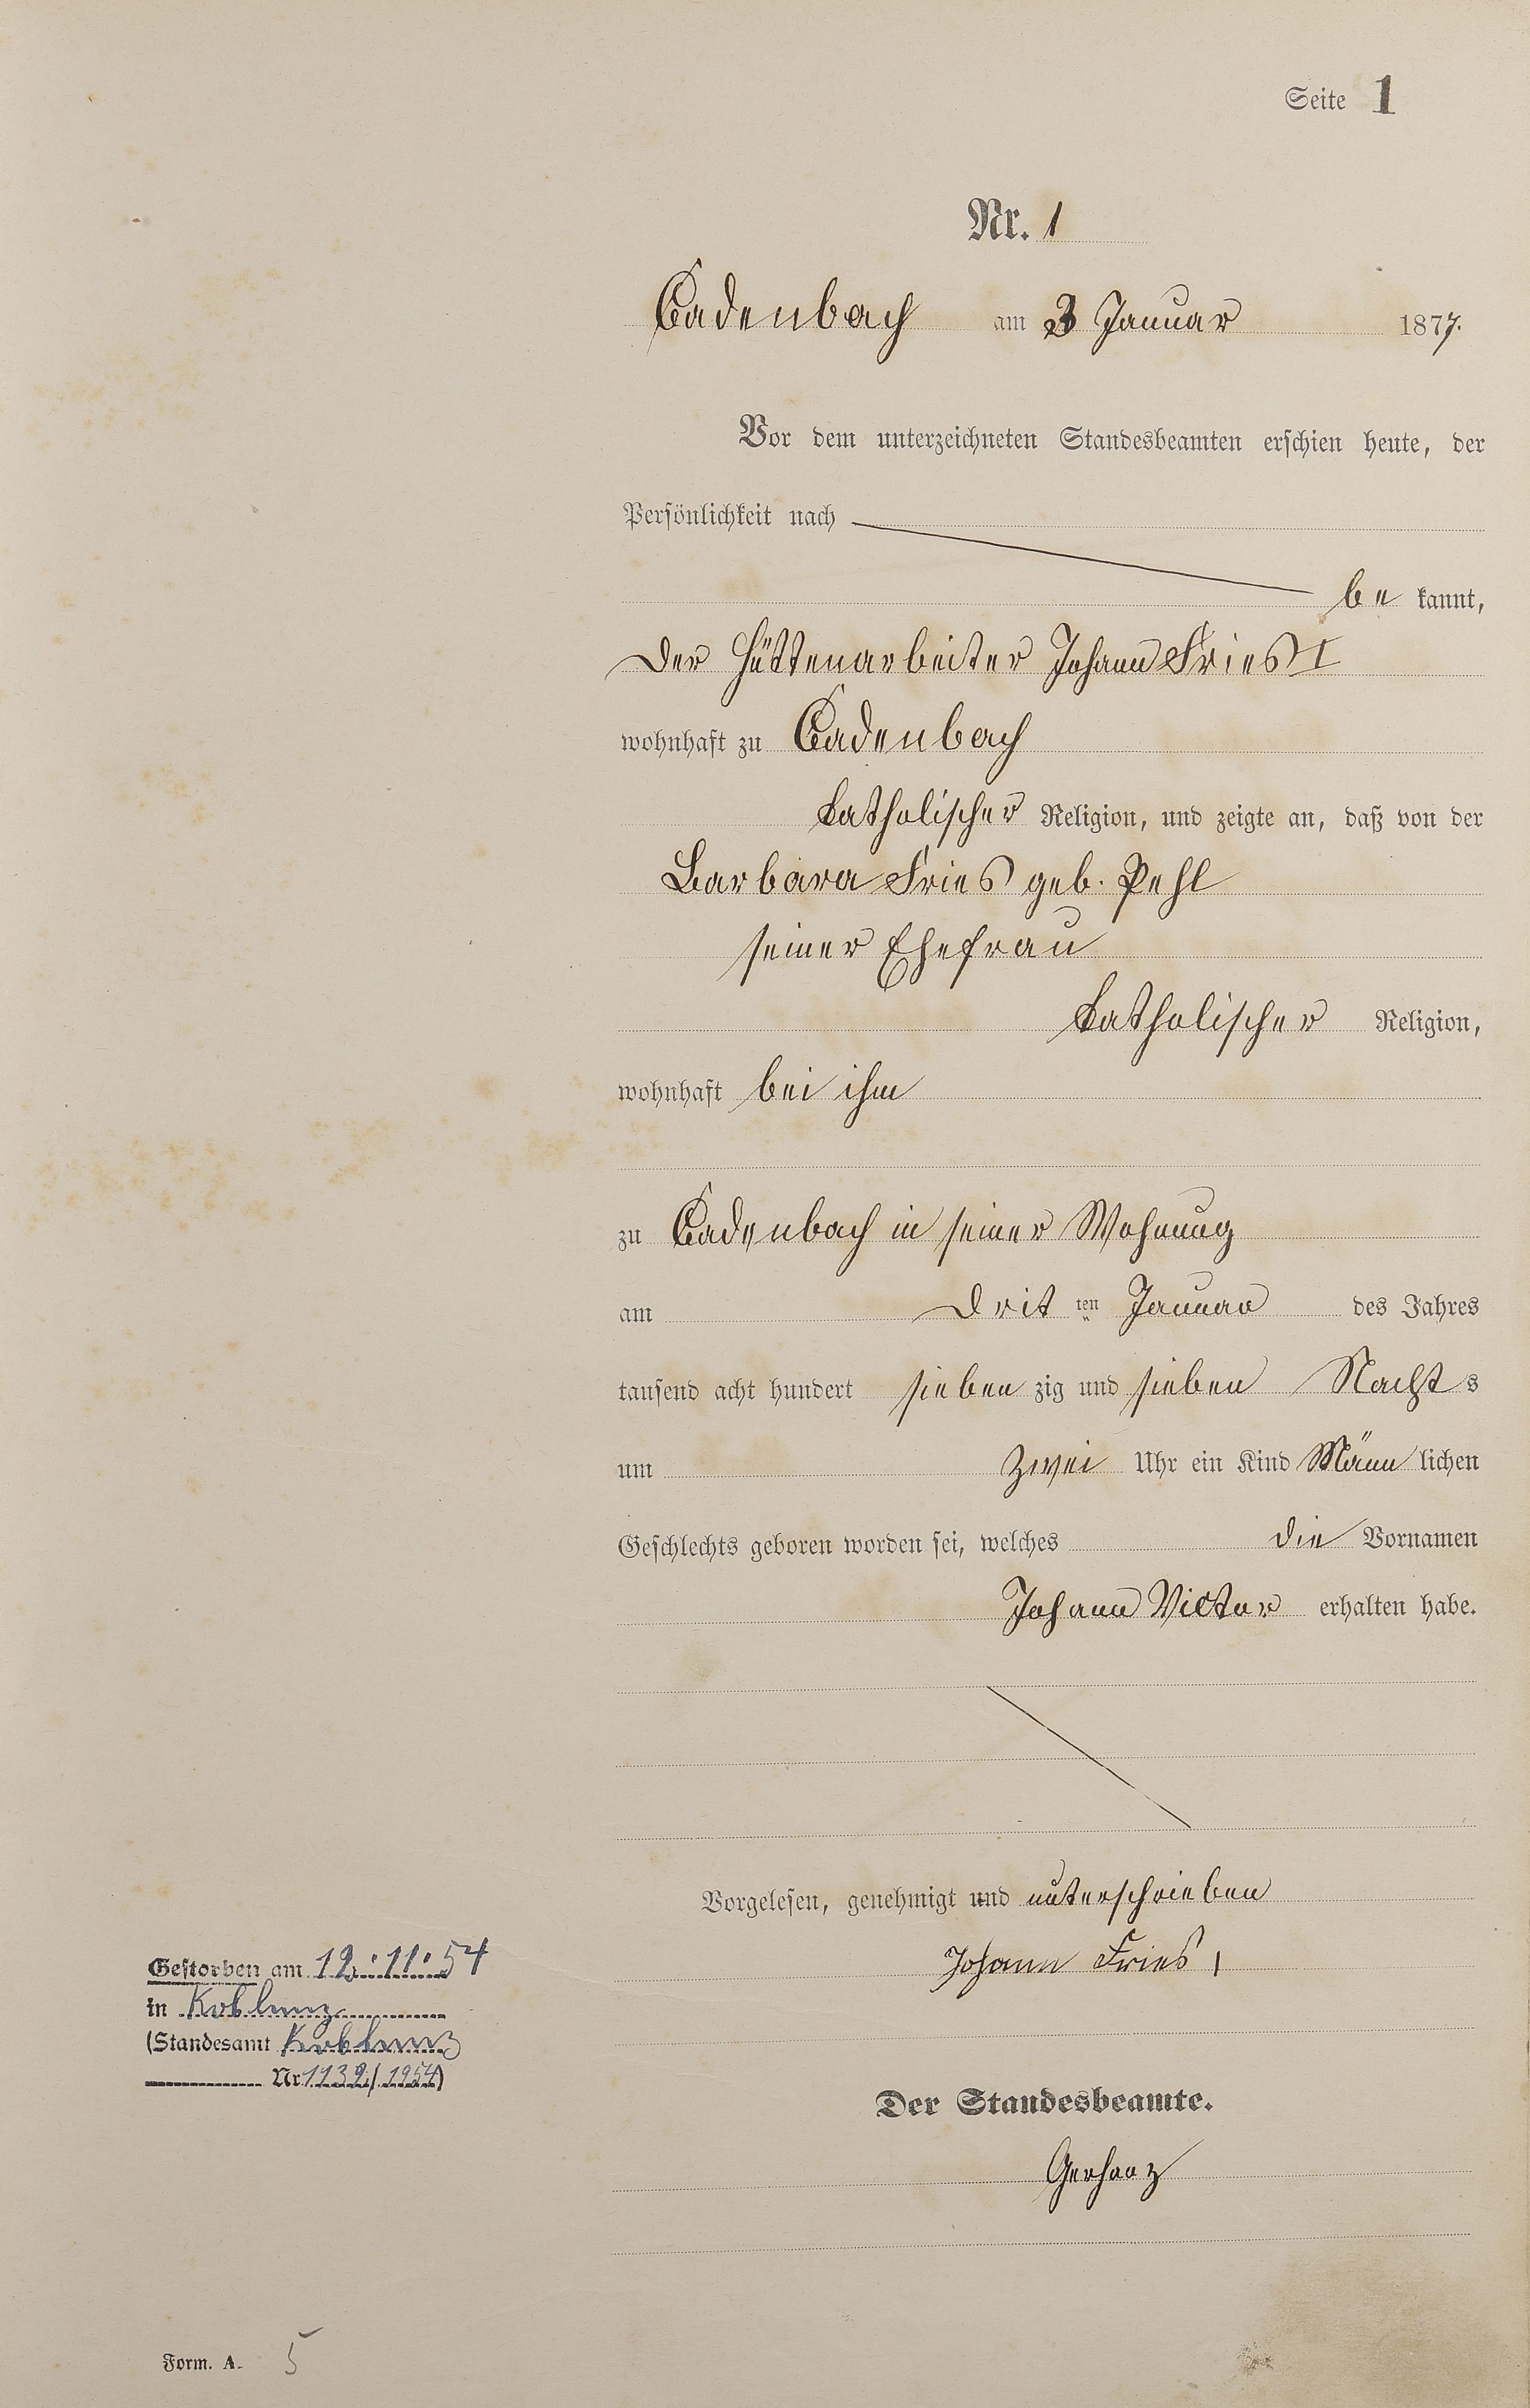 Seite 1
Nr. 1
Cadenbach am 3 Januar 1877.
Vor dem unterzeichneten Standesbeamten erschien heute, der
Persönlichkeit nach
be kannt,
Der Hüttenarbeiter Johann Fries I
wohnhaft zu Cadenbach
katholischer Religion, und zeigte an, daß von der
Barbara Fries geb. Pehl
seiner Ehefrau
katholischer Religion,
wohnhaft bei ihm
zu Cadenbach in seiner Wohnung
am Drit ten Januar des Jahres
tausend acht hundert sieben zig und sieben Nacht s
um zwei Uhr ein Kind Männ lichen
Geschlechts geboren worden sei, welches die Vornamen
Johann Victor erhalten habe.
Vorgelesen, genehmigt und unterschrieben
Johann Fries I
Der Standesbeamte.
Gerharz
Gestorben am 12.11.54
in Koblenz
(Standesamt Koblenz
Nr. 1132/1954)
Form. A. 5